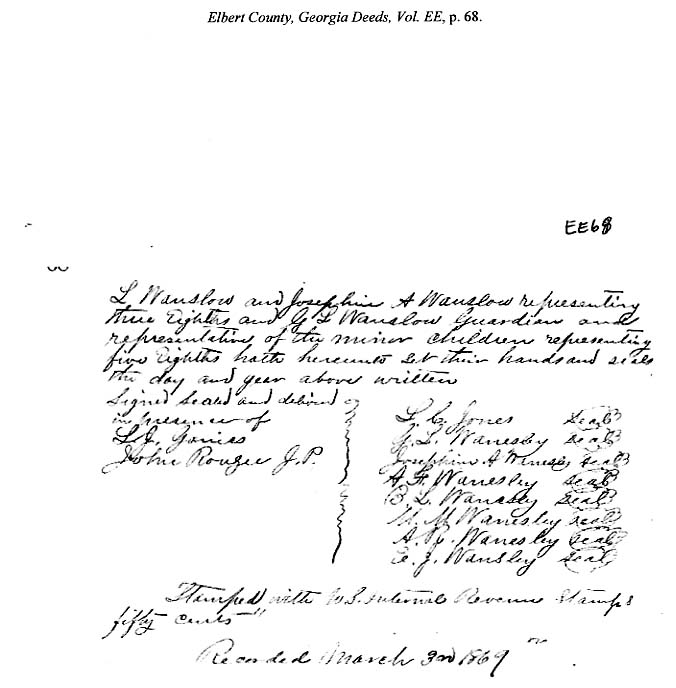 Elbert County, Georgia Deeds, Vol. EE, p. 68.
EE68
L Wanslow and Josephine A Wanslow representing
three Eighths and G L Wanslow Guardian and
representative of the minor children representing
five Eighths hath hereunto Set their hands and seals
the day and year above written
Signed Sealed and delivered
in presence of
L. J. Gaines
John Rouzee J.P.
L. C. Jones Seal
G. L. Wanesley seal
Josephine A Wanesley seal
A. F. Wanesley seal
B. L. Wanesley seal
M. M Wanesley seal
A. Wanesley seal
E. J. Wansley seal
Stamped with U.S. internal Revenue Stamps
fifty cents"
Recorded March 3rd 1869